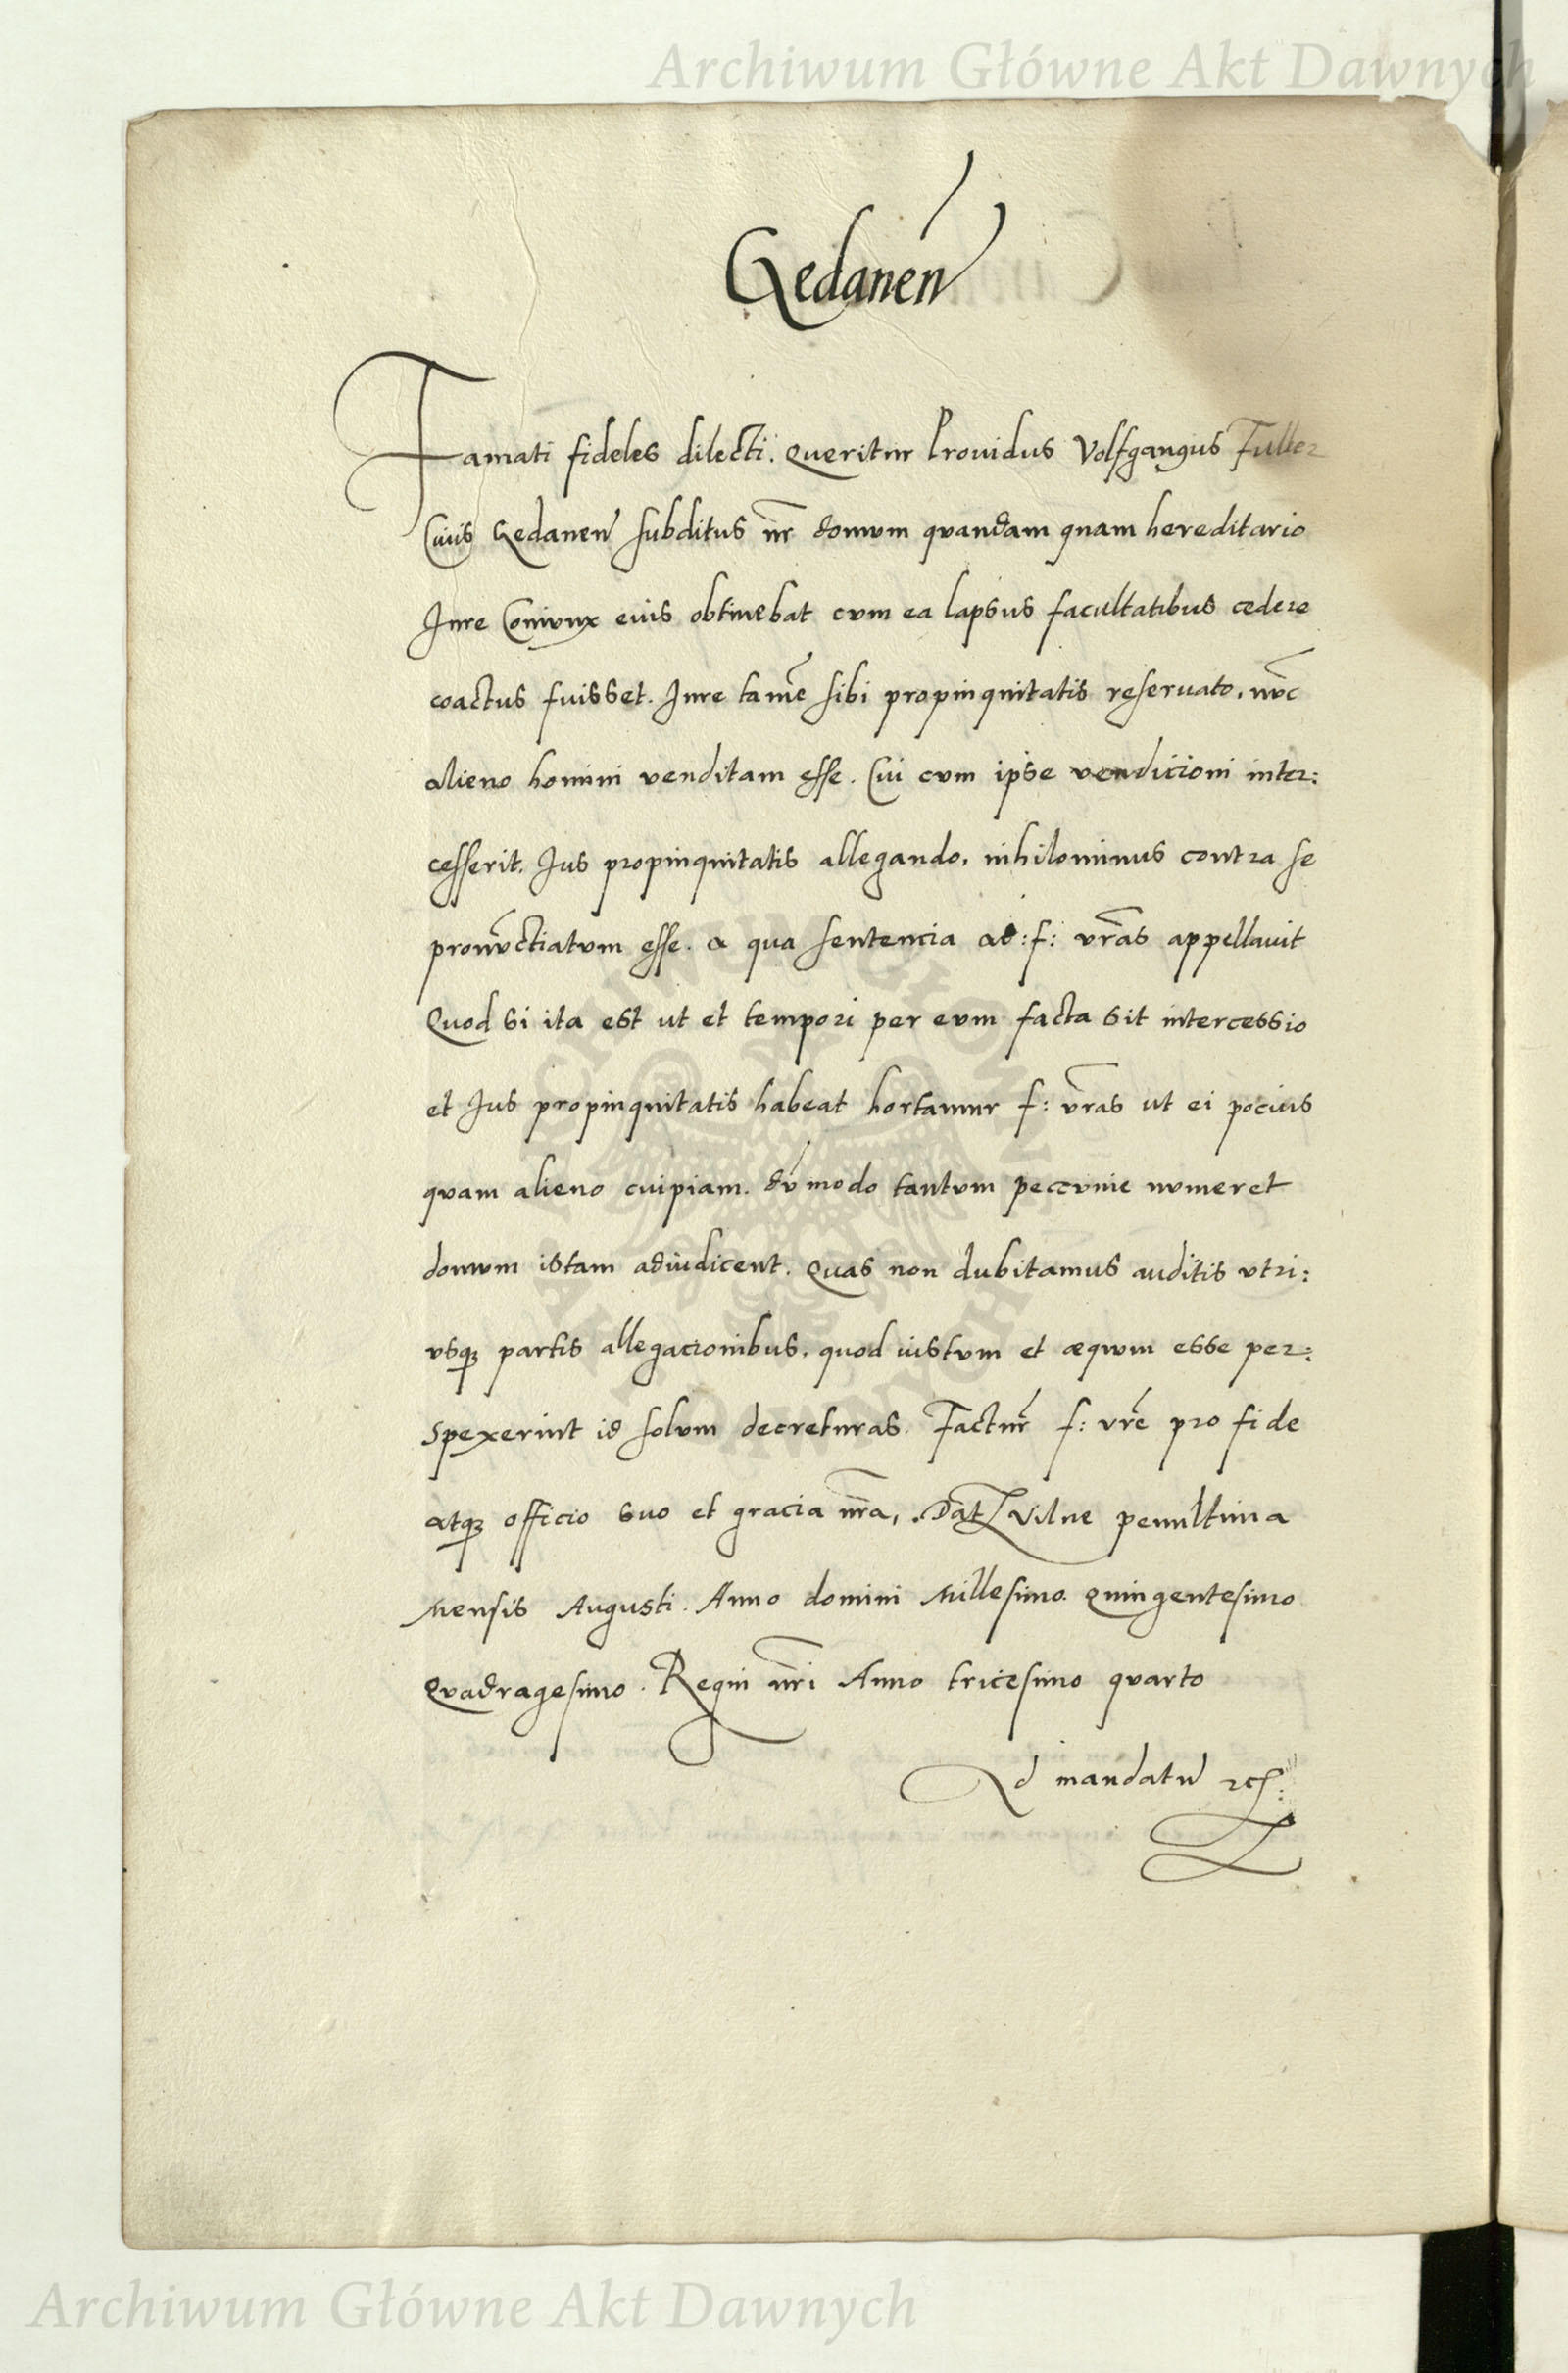 Archiwum Główne Akt Dawnych
Gedanen
Famati fideles dilecti. Queritur Prouidus Volfgangus Fuller
Ciuis Gedanen subditus nr̄ domum quandam quam hereditario
Iure Coniunx eius obtinebat cum ea lapsus facultatibus cedere
coactus fuisset. Iure tamē sibi propinquitatis reseruato, nūc
alieno homini venditam esse. Cui cum ipse vendicioni inter:
cesserit. Ius propinquitatis allegando, nihilominus contra se
pronūctiatum esse. a qua sentencia ad: f: vrās appellauit
Quod si ita est ut et tempori per eum facta sit intercessio
et Ius propinquitatis habeat hortamur f: vrās ut ei pocius
quam alieno cuipiam. dūmodo tantum peccunie numeret
domum istam adiudicent. Quas non dubitamus auditis vtri:
vsqꝫ partis allegacionibus. quod iustum et æquum esse per:
spexerint id solum decreturas. Facturē f: vrē pro fide
atqꝫ officio suo et gracia nrā, . Datꝫ Vilne penultima
mensis Augusti. Anno domini Millesimo. Quingentesimo
Quadragesimo. Regni nrī Anno tricesimo quarto
Ad mandatū rꝫ:
ARCHIWUM GŁÓWNE AKT DAWNYCH
Archiwum Główne Akt Dawnych